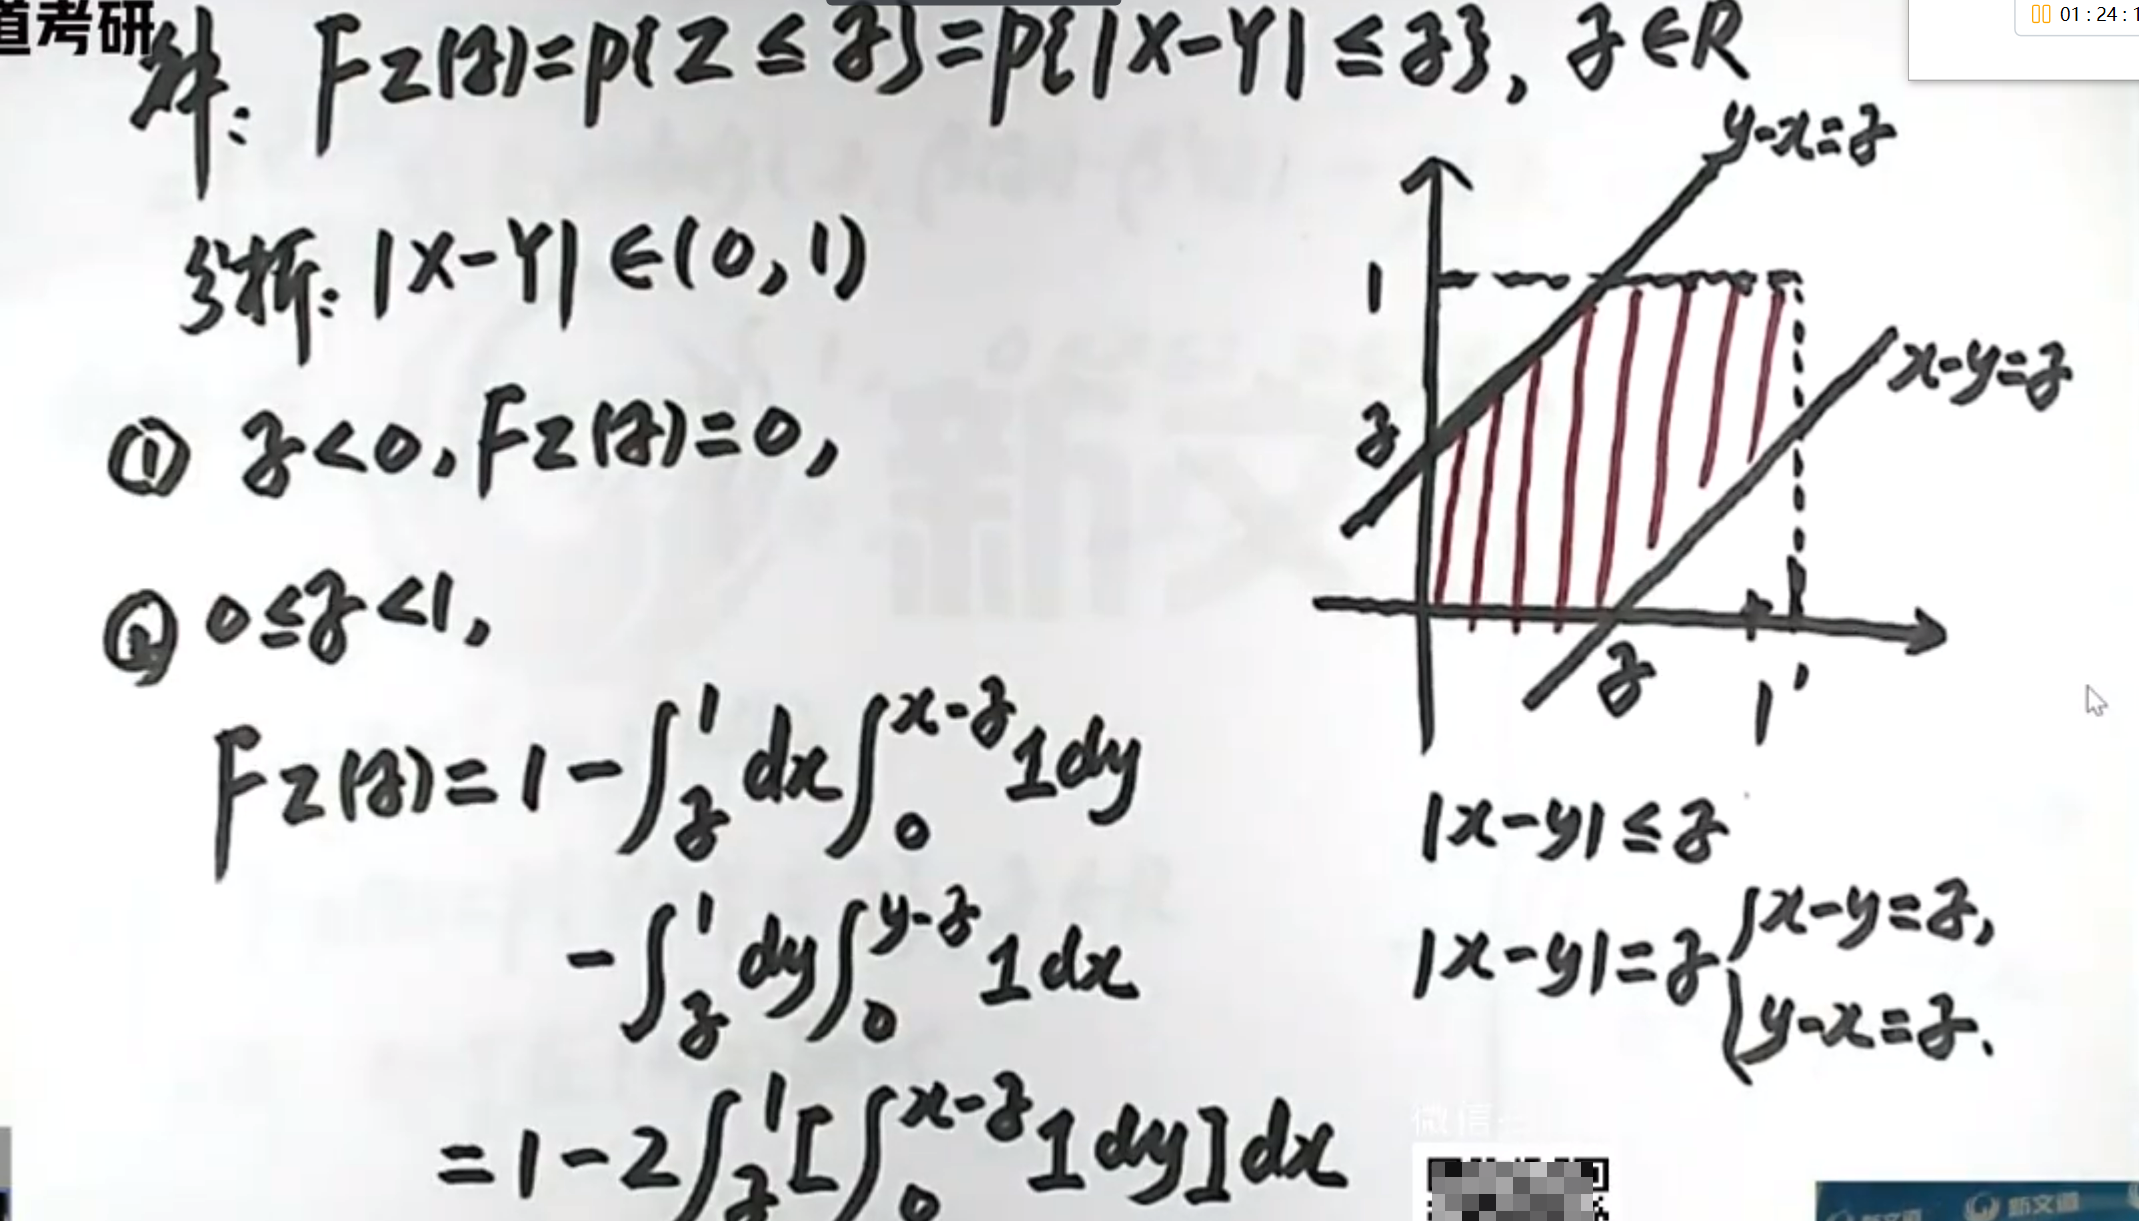 道考研
01:24:1
解: F_Z(z)=P{Z≤z}=P{|X-Y|≤z}, z∈R
分析: |X-Y|∈(0,1)
① z<0, F_Z(z)=0,
② 0≤z<1,
F_Z(z)=1-∫_z^1 dx∫_0^{x-z} 1dy
-∫_z^1 dy∫_0^{y-z} 1dx
=1-2∫_z^1[∫_0^{x-z} 1dy]dx
y-x=z
1
x-y=z
z
z
1
|x-y|≤z
|x-y|=z { x-y=z,
y-x=z.
微信
新文道
新文道